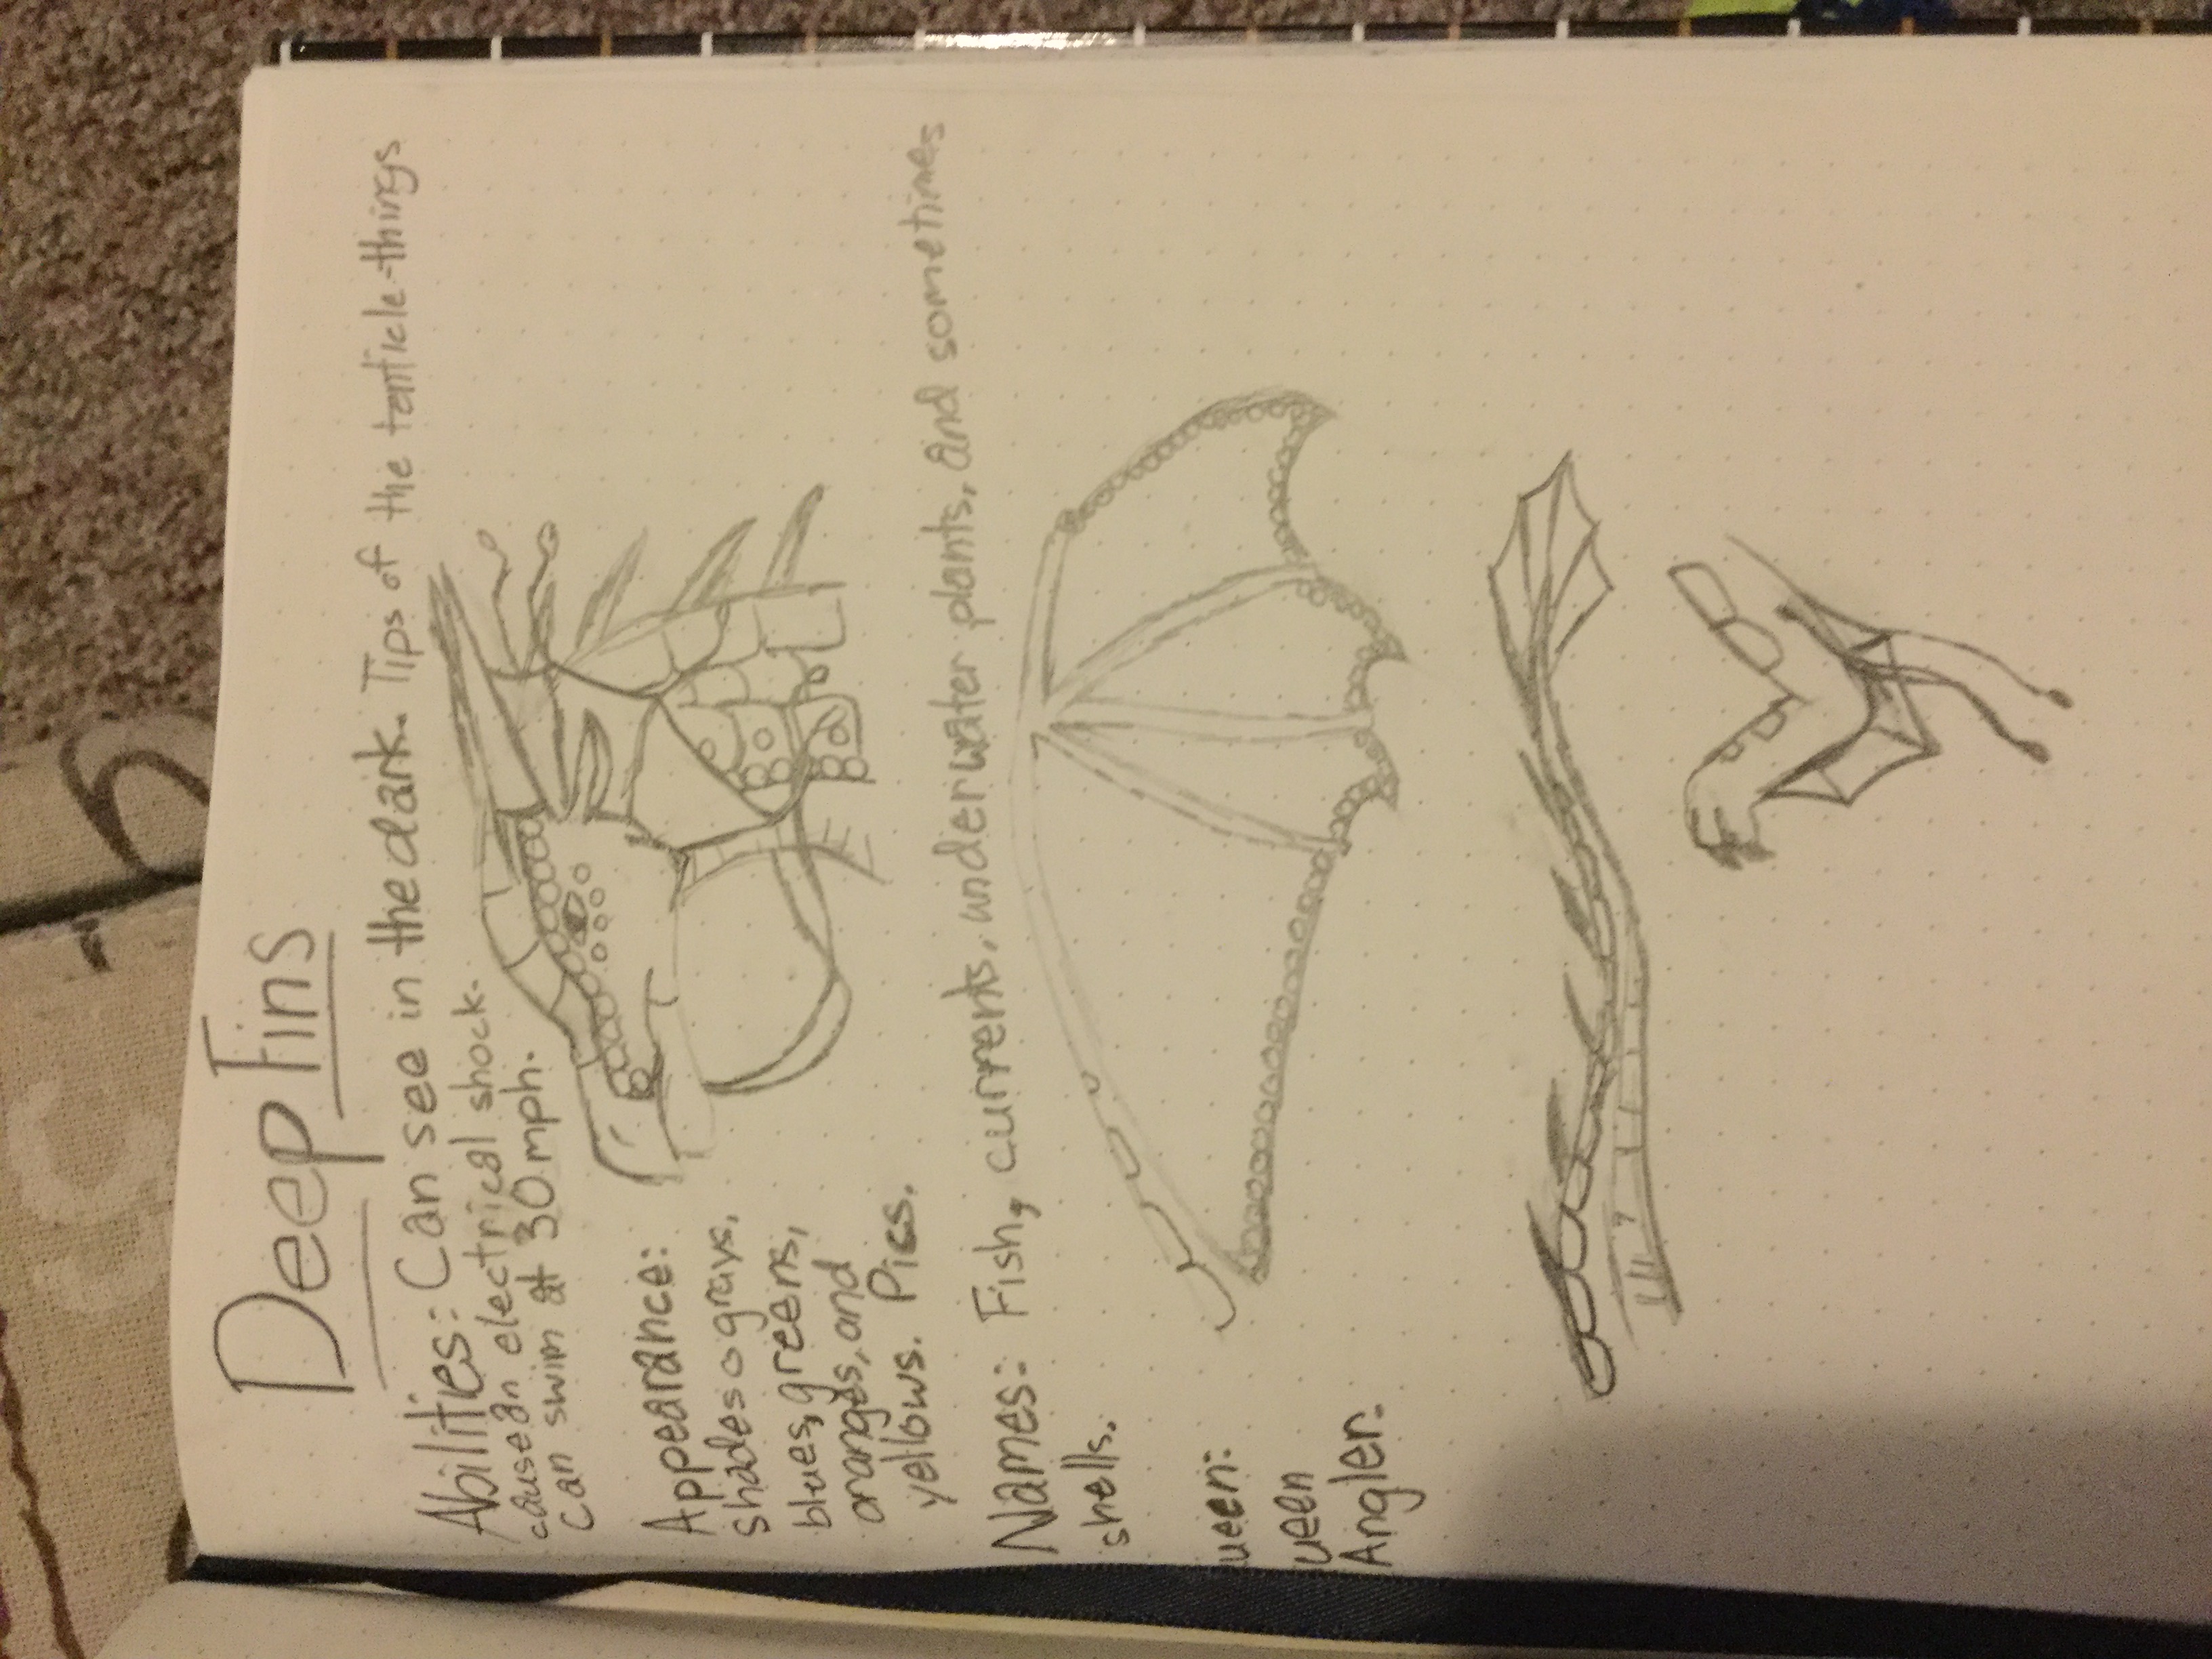 Deep Fins
Abilities: Can see in the dark. Tips of the tenticle-things
cause an electrical shock.
Can swim at 30 mph.
Appearance:
shades o grays,
blues, greens,
oranges, and
yellows. Pics.
Names: Fish, currents, underwater plants, and sometimes
shells.
ueen:
ueen
Angler.